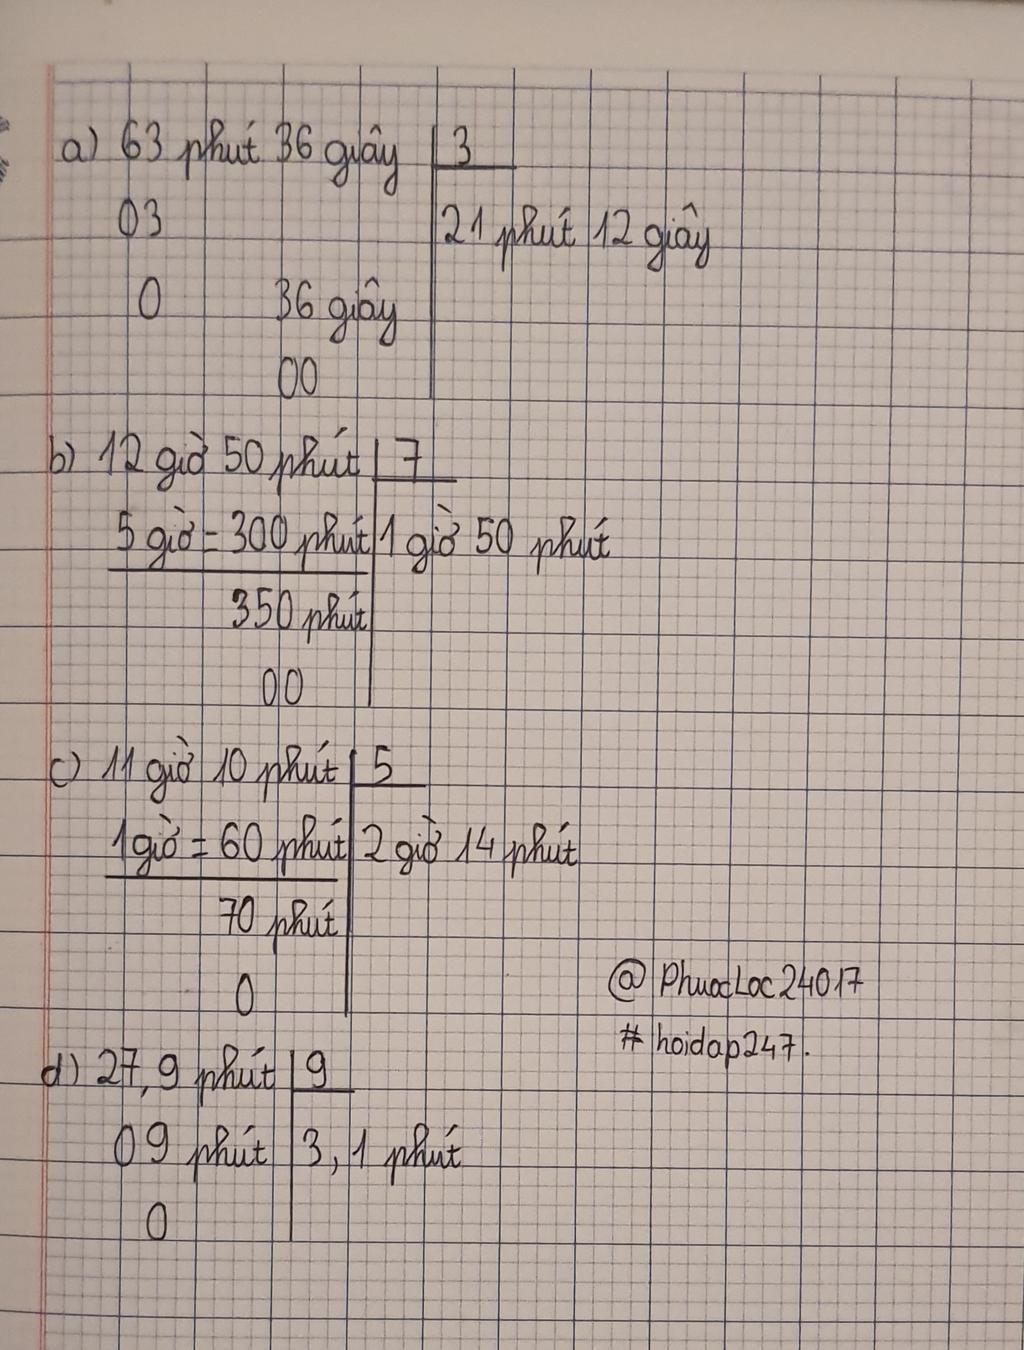 a) 63 phút 36 giây 3
03 21 phút 12 giây
0 36 giây
00
b) 12 giờ 50 phút 7
5 giờ = 300 phút 1 giờ 50 phút
350 phút
00
c) 11 giờ 10 phút 5
1 giờ = 60 phút 2 giờ 14 phút
70 phút
0
@ PhuocLoc24017
# hoidap247.
d) 27,9 phút 9
09 phút 3,1 phút
0